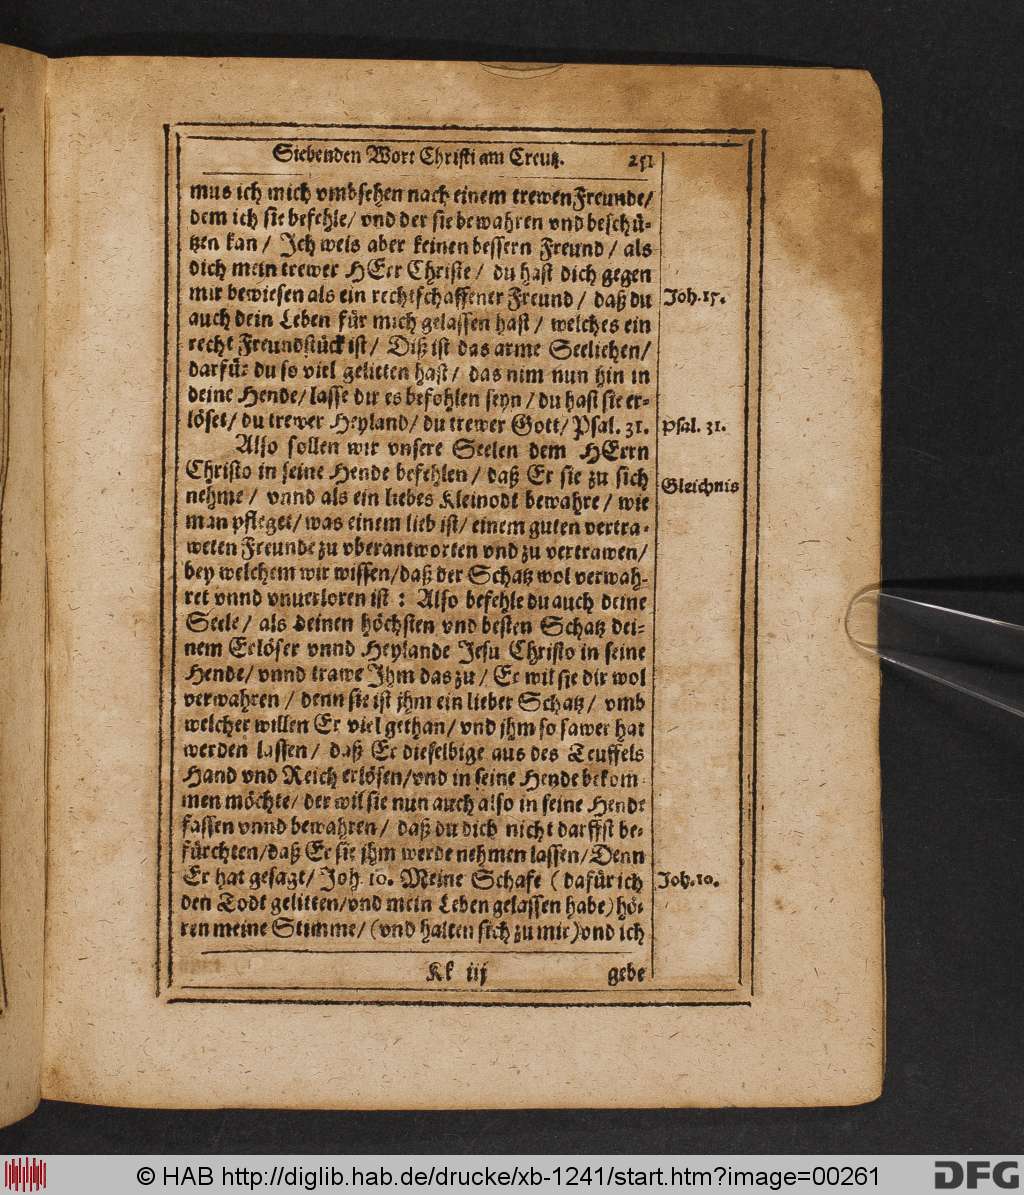 Siebenden Wort Christi am Creutz. 251
mus ich mich vmbsehen nach einem trewen Freunde/
dem ich sie befehle/ vnd der sie bewahren vnd beschü-
tzen kan/ Ich weis aber keinen bessern Freund/ als
dich mein trewer HErr Christe/ du hast dich gegen
mir bewiesen als ein rechtschaffener Freund/ daß du
Joh. 15.
auch dein Leben für mich gelassen hast/ welches ein
recht Freundstück ist/ Diß ist das arme Seelichen/
darfür du so viel gelitten hast/ das nim nun hin in
deine Hende/ lasse dir es befohlen seyn/ du hast sie er-
löset/ du trewer Heyland/ du trewer Gott/ Psal. 31.
Psal. 31.
Also sollen wir vnsere Seelen dem HErrn
Christo in seine Hende befehlen/ daß Er sie zu sich
Gleichnis
nehme/ vnnd als ein liebes Kleinodt bewahre/ wie
man pfleget/ was einem lieb ist/ einem guten vertra-
weten Freunde zu vberantworten vnd zu vertrawen/
bey welchem wir wissen/ daß der Schatz wol verwah-
ret vnnd vnuerloren ist: Also befehle du auch deine
Seele/ als deinen höchsten vnd besten Schatz dei-
nem Erlöser vnnd Heylande Jesu Christo in seine
Hende/ vnnd trawe Ihm das zu/ Er wil sie dir wol
verwahren/ denn sie ist jhm ein lieber Schatz/ vmb
welcher willen Er viel gethan/ vnd jhm so sawer hat
werden lassen/ daß Er dieselbige aus des Teuffels
Hand vnd Reich erlösen/ vnd in seine Hende bekom-
men möchte/ der wil sie nun auch also in seine Hende
fassen vnnd bewahren/ daß du dich nicht darffst be-
fürchten/ daß Er sie jhm werde nehmen lassen/ Denn
Er hat gesagt/ Joh. 10. Meine Schafe (dafür ich
Joh. 10.
den Todt gelitten/ vnd mein Leben gelassen habe) hö-
ren meine Stimme/ (vnd halten sich zu mir) vnd ich
Kk iij gebe
© HAB http://diglib.hab.de/drucke/xb-1241/start.htm?image=00261
DFG